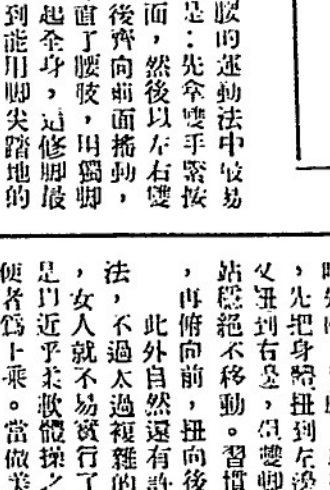 腰的運動法中最易
是：先拿雙手緊按
面，然後以左右雙
後齊向前面搖動，
直了腰肢，用獨脚
起全身，這修脚最
到能用脚尖踏地的
，先把身體扭到左邊
又扭到右邊，但雙脚
站穩絕不移動。習慣
，再俯向前，扭向後
此外自然還有許
法，不過太過複雜的
，女人就不易實行了
是以近乎柔軟體操之
便者爲上乘。當做美